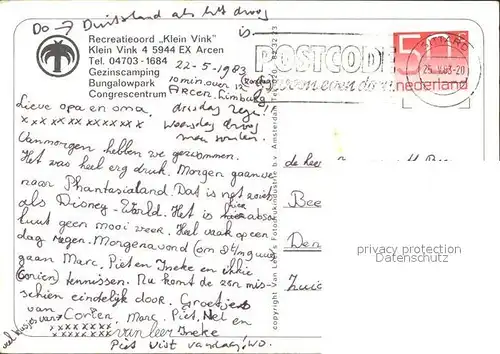 Do → Duitsland als het droog
is
Recreatieoord „Klein Vink"
Klein Vink 4 5944 EX Arcen
Tel. 04703 - 1684
Gezinscamping
Bungalowpark
Congrescentrum
22-5-1983
10 min. over 12
Arcen. Limburg
dinsdag regen!!
woensdag droog
maar
POSTCODE
even
SITTARD
25. V.83-20
50
nederland
Lieve opa en oma,
Vanmorgen hebben we gezwommen.
Het was heel erg druk. Morgen gaan we
naar Phantasialand. Dat is net zoiets
als Disney-World. Het is hier abso-
luut geen mooi weer. Heel vaak op een
dag regen. Morgenavond (om
gaan Marc, Piet en Ineke en ikke
(Corien) tennissen. Nu komt de zon mis-
schien eindelijk door. Groetjes
van Corien, Marc, Piet, Nel en
van Leer Ineke
veel kusjes van
xxxxxxxx
Piet vist vandaag! wo.
de heer
Bee
Den
Zui
van Leer's Fotodrukindustrie b.v. Amsterdam
privacy protection
Datenschutz